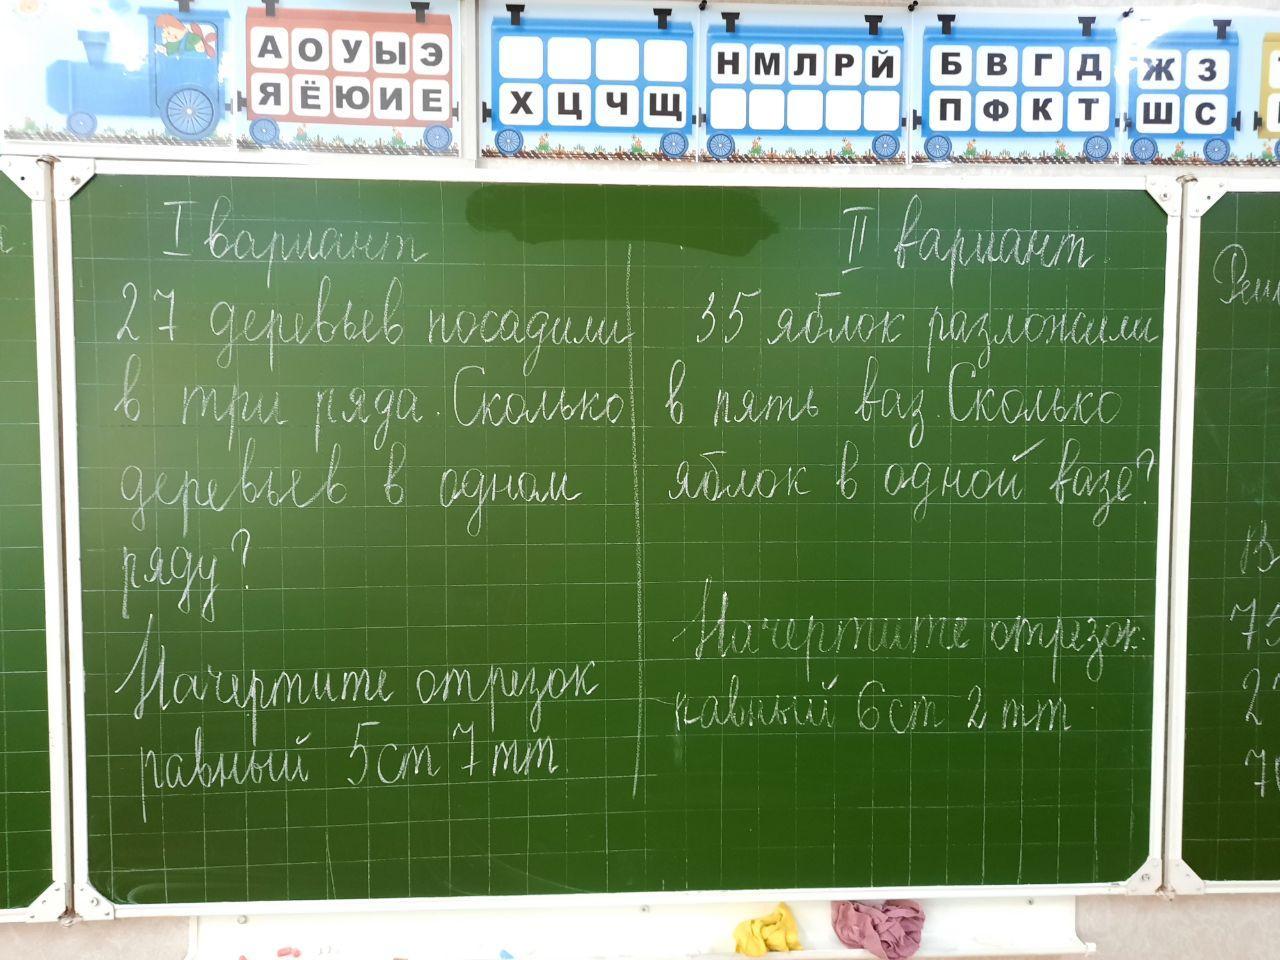 А О У Ы Э
Я Ё Ю И Е
Х Ц Ч Щ
Н М Л Р Й
Б В Г Д
П Ф К Т
Ж З
Ш С
I вариант
27 деревьев посадили
в три ряда. Сколько
деревьев в одном
ряду?
Начертите отрезок
равный 5см 7 мм
II вариант
35 яблок разложили
в пять ваз. Сколько
яблок в одной вазе?
Начертите отрезок
равный 6см 2 мм.